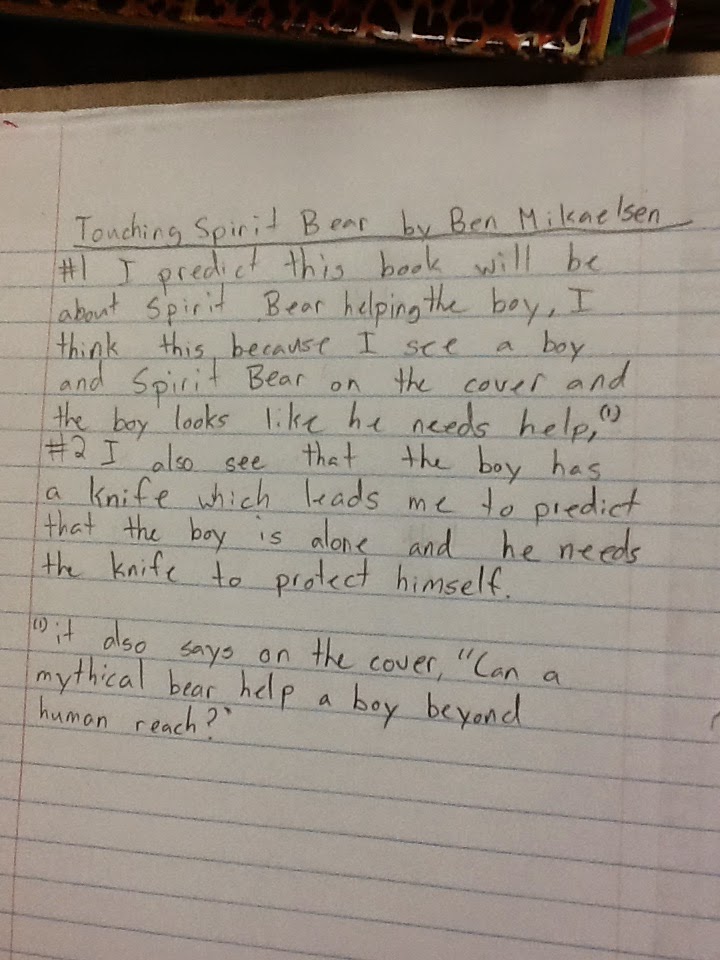 Touching Spirit Bear by Ben Mikaelsen
#1 I predict this book will be
about Spirit Bear helping the boy, I
think this because I see a boy
and Spirit Bear on the cover and
the boy looks like he needs help,(1)
#2 I also see that the boy has
a knife which leads me to predict
that the boy is alone and he needs
the knife to protect himself.
(1) it also says on the cover, "Can a
mythical bear help a boy beyond
human reach?"